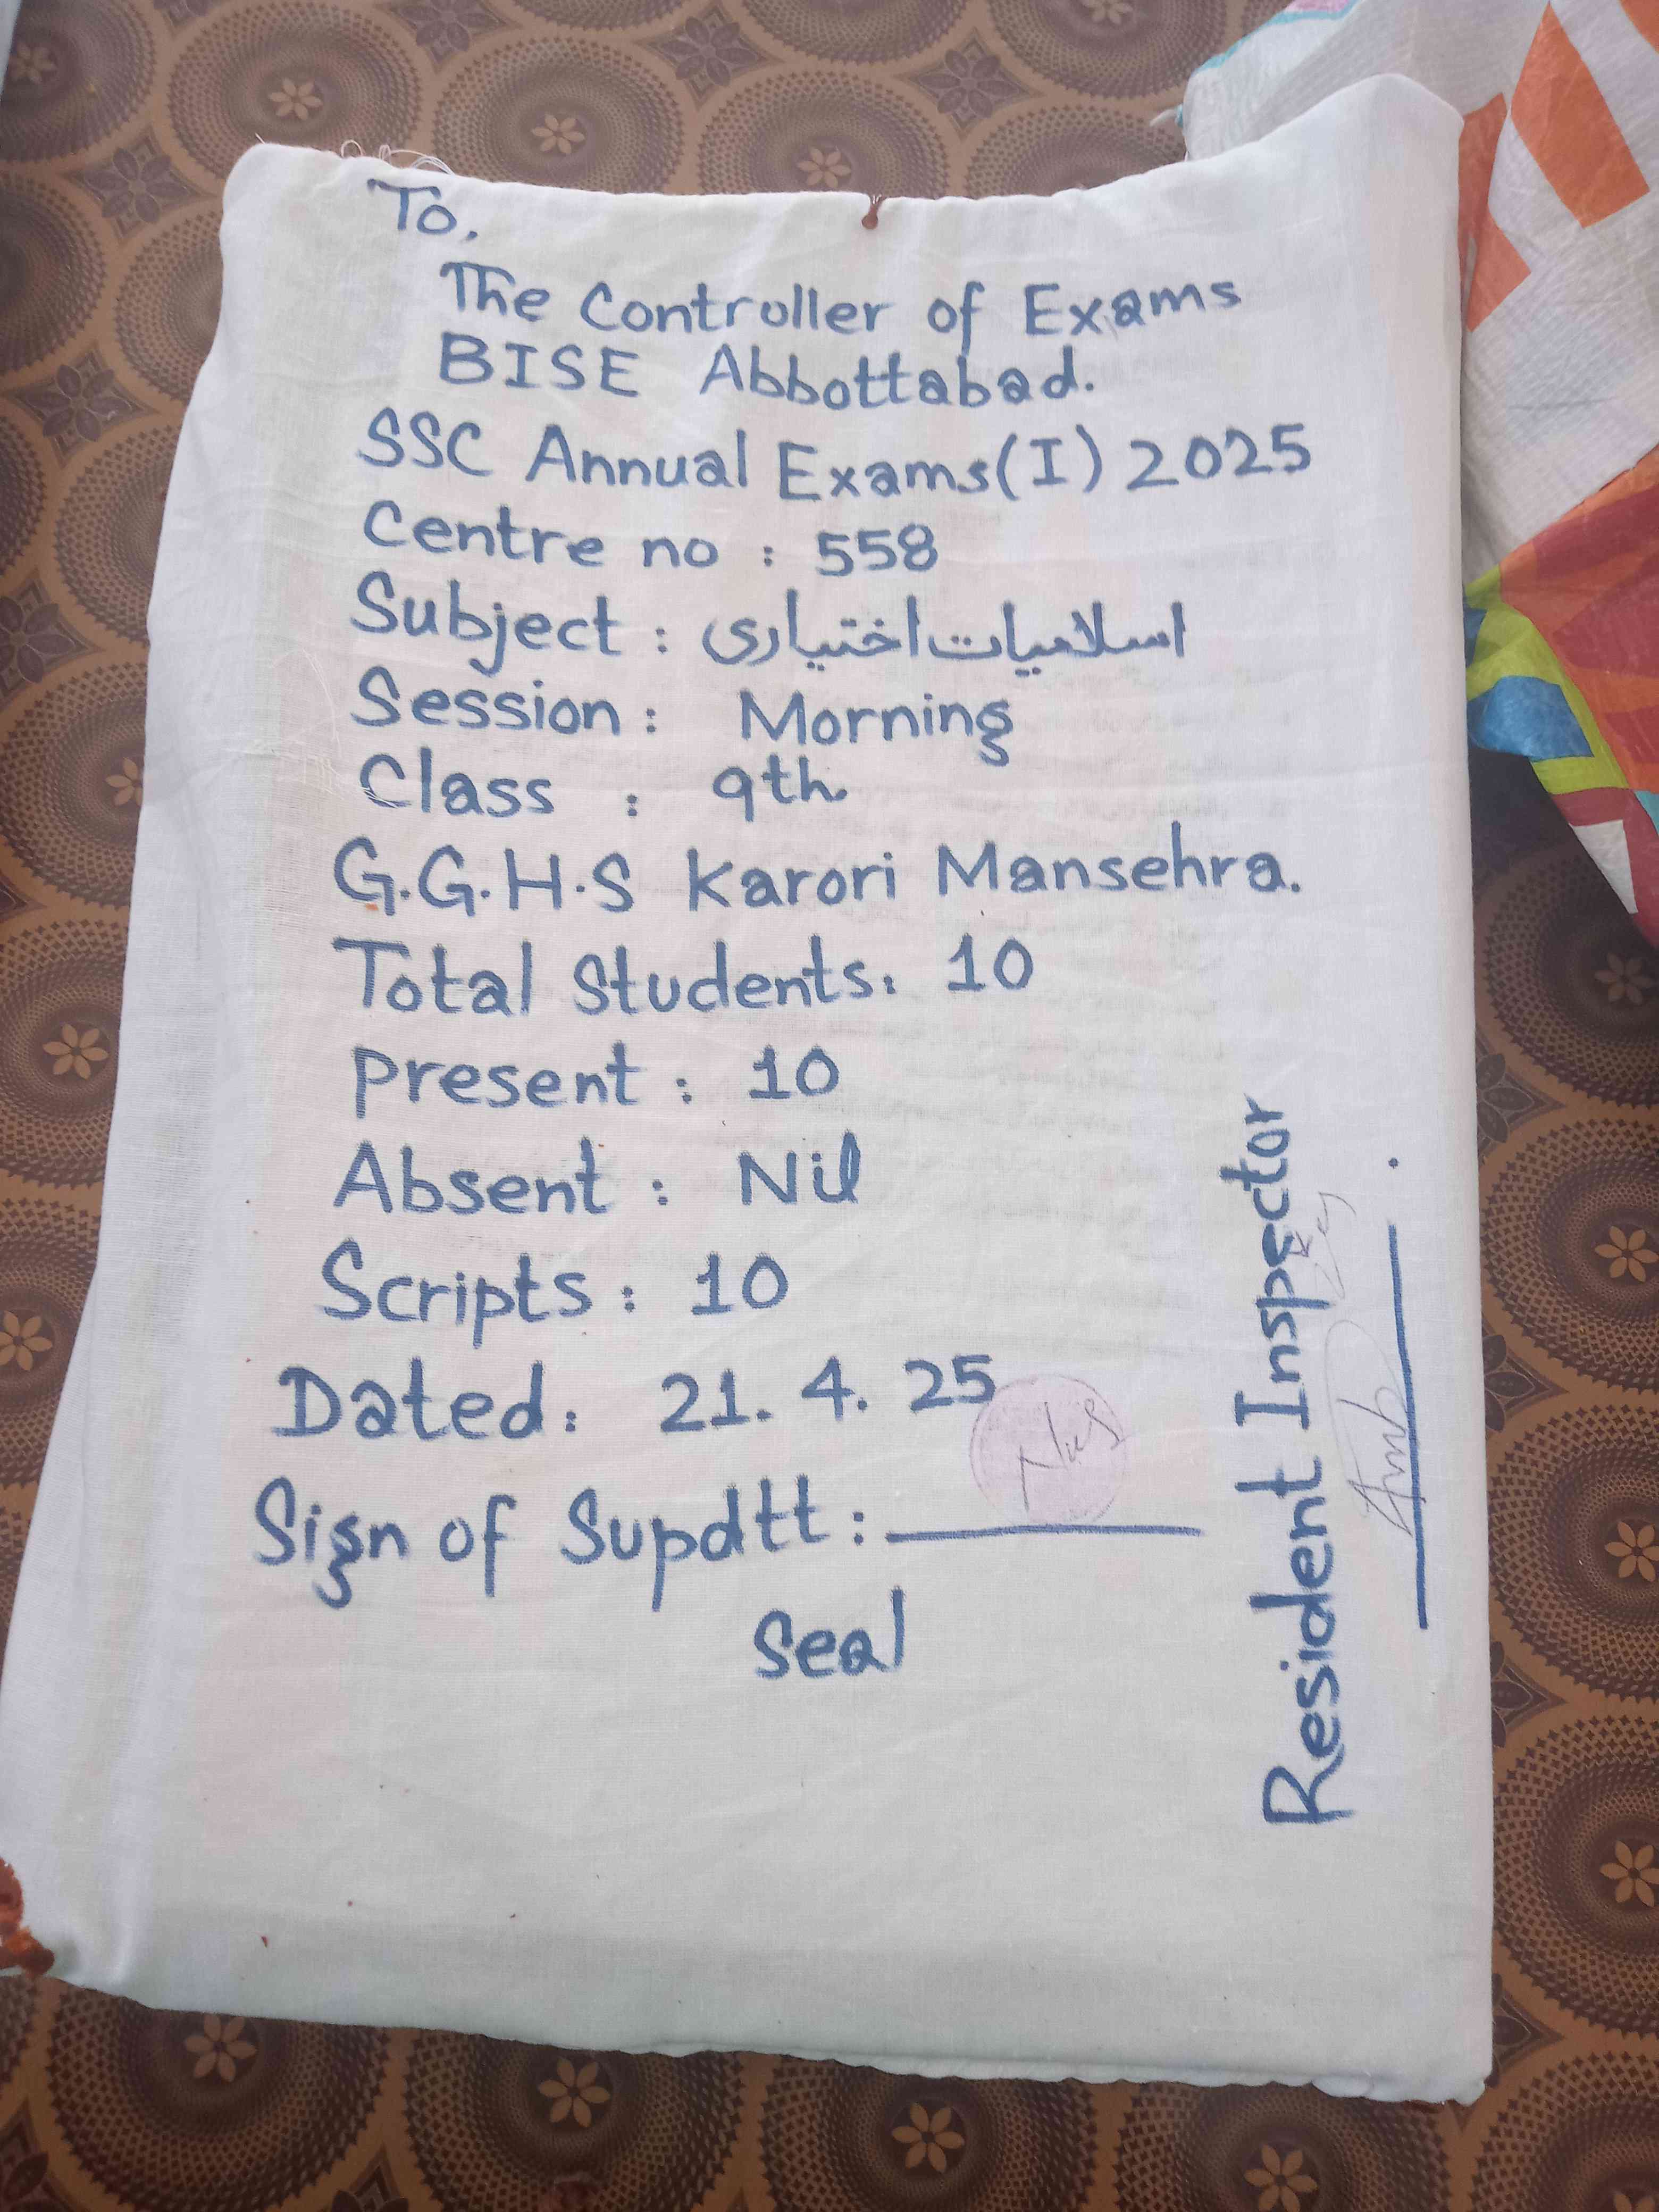 To,
The Controller of Exams
BISE Abbottabad.
SSC Annual Exams(I) 2025
Centre no : 558
Subject : اسلامیات اختیاری
Session : Morning
Class : 9th
G.G.H.S Karori Mansehra.
Total Students: 10
Present : 10
Absent : Nil
Scripts : 10
Dated: 21. 4. 25
Sign of Supdtt :
Seal
Resident Inspector